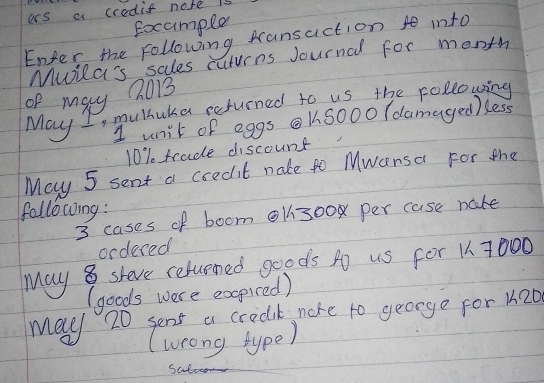 as a credit note is
Example
Enter the Following transaction to into
Mwila's sales returns Journal for month
of may 2013
May 1, mulhuka returned to us the following
1 unit of eggs @K5000 (damaged) less
10% trade discount
May 5 sent a credit note to Mwansa For the
following:
3 cases of boom @K300 per case note
ordered
May 8 steve returned goods to us for K7000
(goods were expired)
May 20 sent a credit note to george for K200
(wrong type)